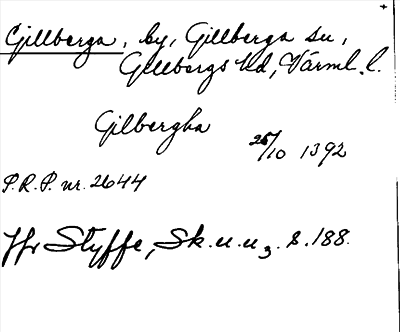 Gillberga, by, Gillberga sn,
Gillbergs hd, Värml. l.
Gilbergha
25/10 1392
P.R.P. nr. 2644
Jfr Styffe, Sk. u. u3. s. 188.